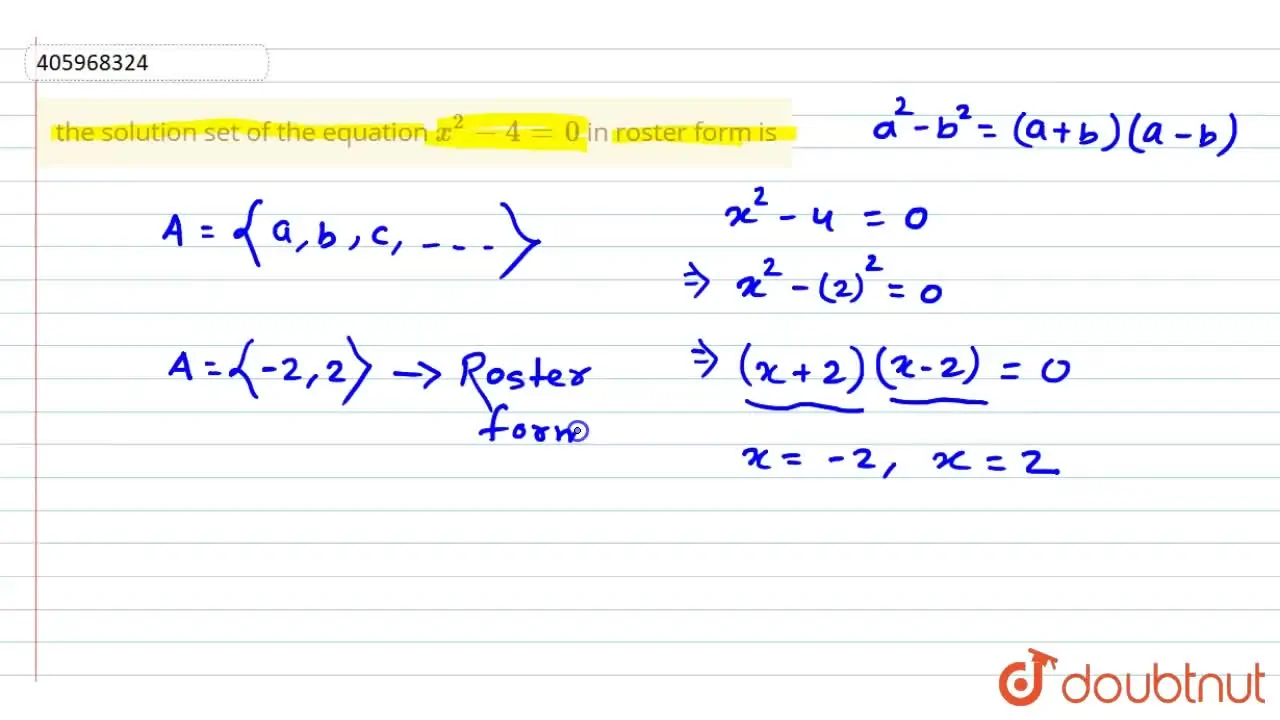 405968324
the solution set of the equation x² − 4 = 0 in roster form is
a² - b² = (a + b)(a - b)
A = {a, b, c, ----}
x² - 4 = 0
⇒ x² - (2)² = 0
A = {-2, 2} → Roster form
⇒ (x + 2)(x - 2) = 0
x = -2, x = 2
doubtnut